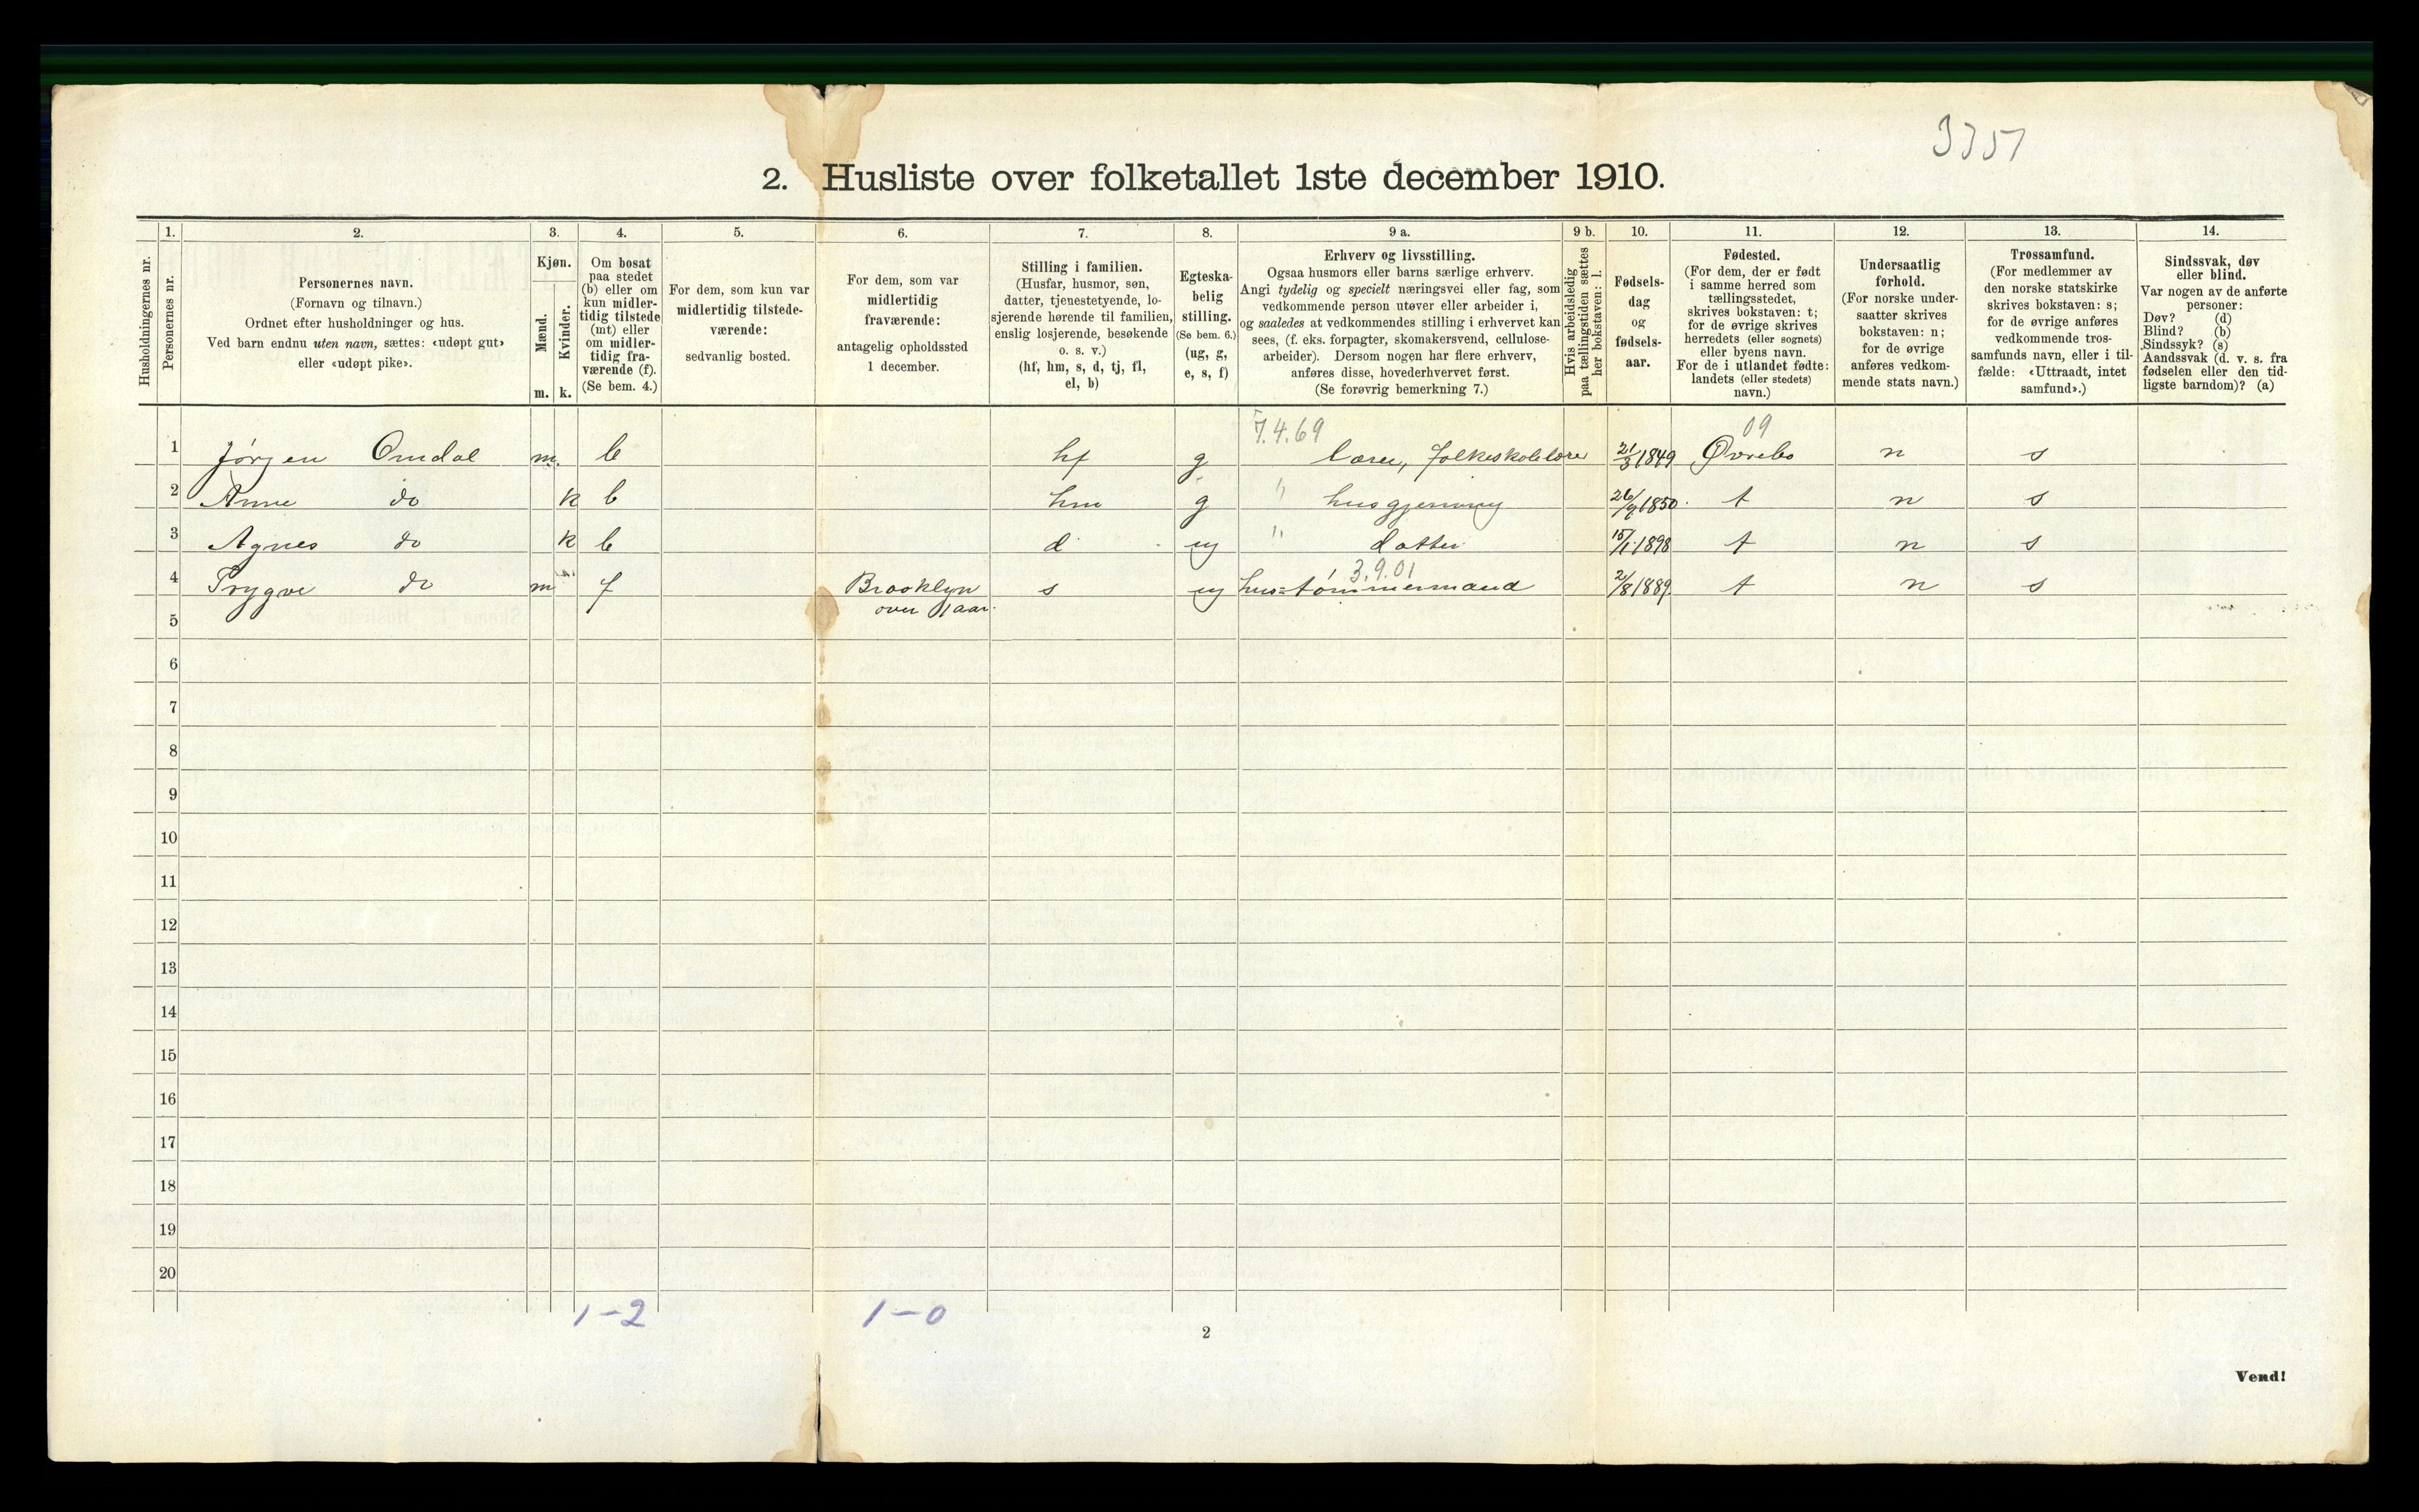 3351
2. Husliste over folketallet 1ste december 1910.
Husholdningernes nr.
1.
Personernes nr.
2.
Personernes navn.
(Fornavn og tilnavn.)
Ordnet efter husholdninger og hus.
Ved barn endnu uten navn, sættes: «udøpt gut»
eller «udøpt pike».
3.
Kjøn.
Mænd.
Kvinder.
m. k.
4.
Om bosat
paa stedet
(b) eller om
kun midler-
tidig tilstede
(mt) eller
om midler-
tidig fra-
værende (f).
(Se bem. 4.)
5.
For dem, som kun var
midlertidig tilstede-
værende:
sedvanlig bosted.
6.
For dem, som var
midlertidig
fraværende:
antagelig opholdssted
1 december.
7.
Stilling i familien.
(Husfar, husmor, søn,
datter, tjenestetyende, lo-
sjerende hørende til familien,
enslig losjerende, besøkende
o. s. v.)
(hf, hm, s, d, tj, fl,
el, b)
8.
Egteska-
belig
stilling.
(Se bem. 6.)
(ug, g,
e, s, f)
9 a.
Erhverv og livsstilling.
Ogsaa husmors eller barns særlige erhverv.
Angi tydelig og specielt næringsvei eller fag, som
vedkommende person utøver eller arbeider i,
og saaledes at vedkommendes stilling i erhvervet kan
sees, (f. eks. forpagter, skomakersvend, cellulose-
arbeider). Dersom nogen har flere erhverv,
anføres disse, hovederhvervet først.
(Se forøvrig bemerkning 7.)
9 b.
Hvis arbeidsledig
paa tællingstiden sættes
her bokstaven: l.
10.
Fødsels-
dag
og
fødsels-
aar.
11.
Fødested.
(For dem, der er født
i samme herred som
tællingsstedet,
skrives bokstaven: t;
for de øvrige skrives
herredets (eller sognets)
eller byens navn.
For de i utlandet fødte:
landets (eller stedets)
navn.)
12.
Undersaatlig
forhold.
(For norske under-
saatter skrives
bokstaven: n;
for de øvrige
anføres vedkom-
mende stats navn.)
13.
Trossamfund.
(For medlemmer av
den norske statskirke
skrives bokstaven: s;
for de øvrige anføres
vedkommende tros-
samfunds navn, eller i til-
fælde: «Uttraadt, intet
samfund».)
14.
Sindssvak, døv
eller blind.
Var nogen av de anførte
personer:
Døv? (d)
Blind? (b)
Sindssyk? (s)
Aandssvak (d. v. s. fra
fødselen eller den tid-
ligste barndom)? (a)
7.4.69 09
1 Jørgen Omdal m. b hf g lærer, folkeskolelære 21/3 1849 Øvrebo n s
2 Anne do k b hm g " husgjerning 26/9 1850 t n s
3 Agnes do k b d ug " datter 15/1 1898 t n s
3.9.01
4 Trygve do m f Brooklyn s ug hus=tømmermand 2/8 1889 t n s
over 1 aar.
5
6
7
8
9
10
11
12
13
14
15
16
17
18
19
20
1-2 1-0
2
Vend!